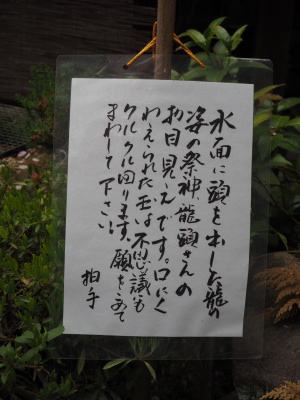 水面に頭を出した龍の
姿の祭神龍頭さんの
お目見えです。口にく
わえられた玉は不思議にも
クルクル回ります。願をこめて
まわして下さい
拍手